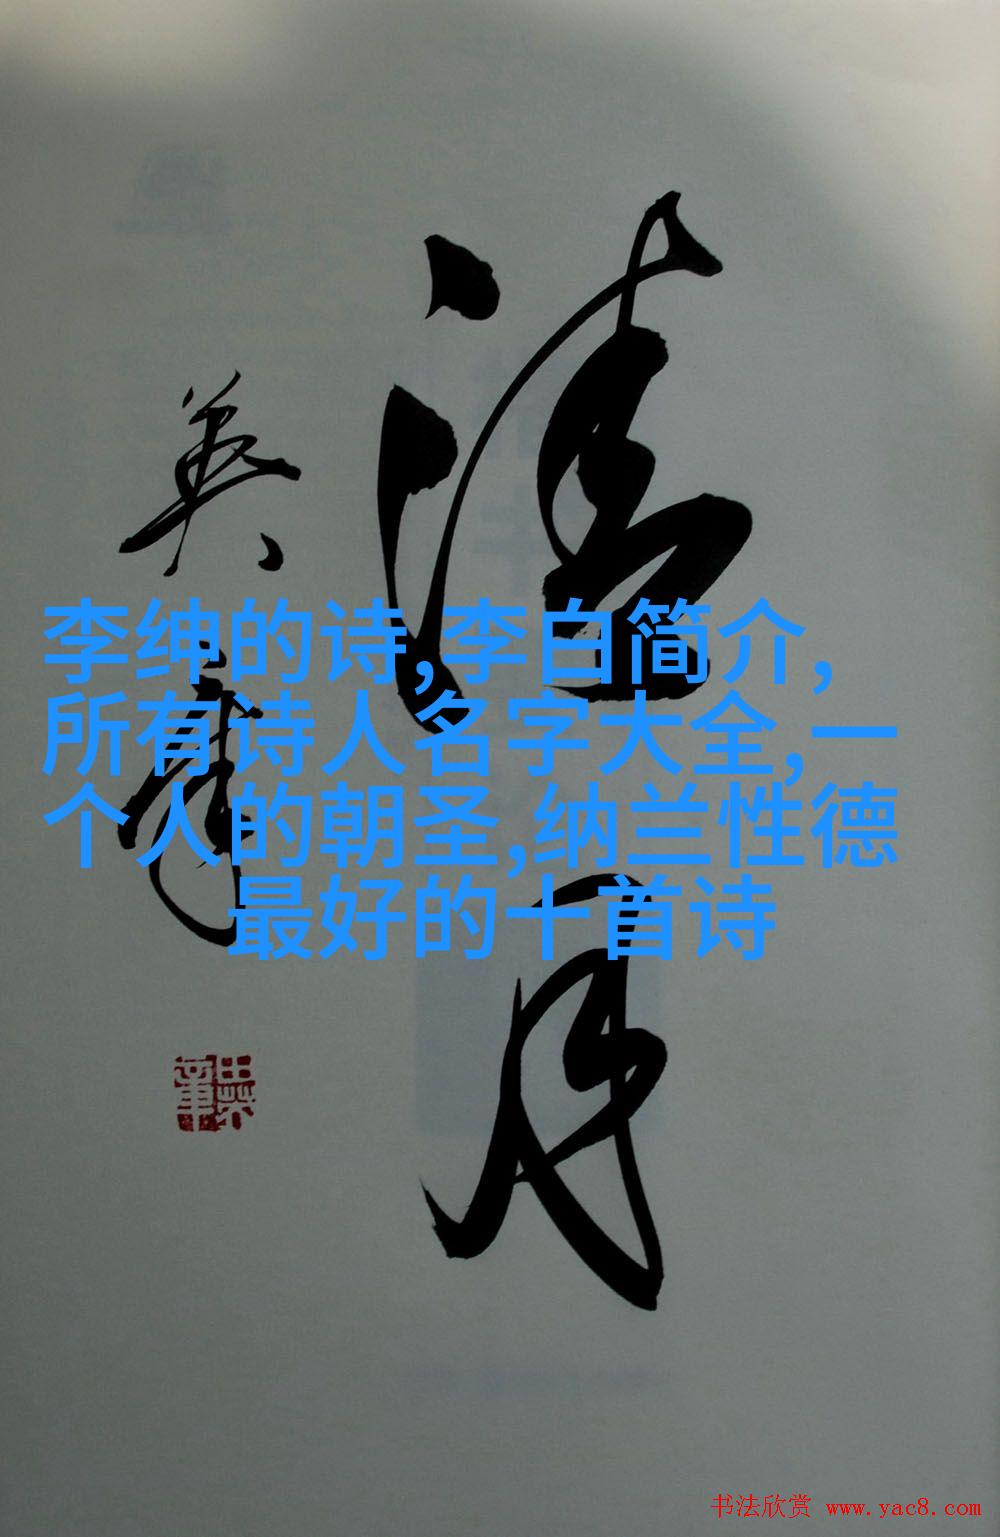 清月
李绅的诗,李白简介,
所有诗人名字大全,一
个人的朝圣,纳兰性德
最好的十首诗
书法欣赏 www.yac8.com